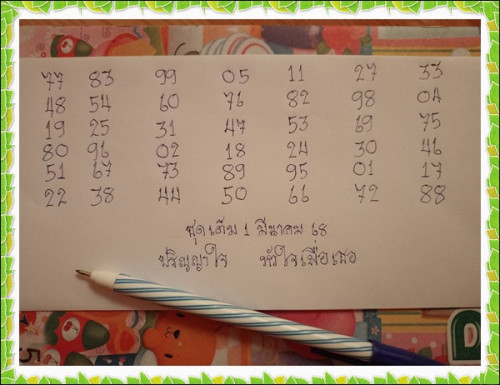 77 83 99 05 11 27 33
48 54 60 76 82 98 04
19 25 31 47 53 69 75
80 96 02 18 24 30 46
51 67 73 89 95 01 17
22 38 44 50 66 72 88
ชุดเต็ม 1 มีนาคม 68
ปริญญาใจ หัวใจเมื่อเธอ